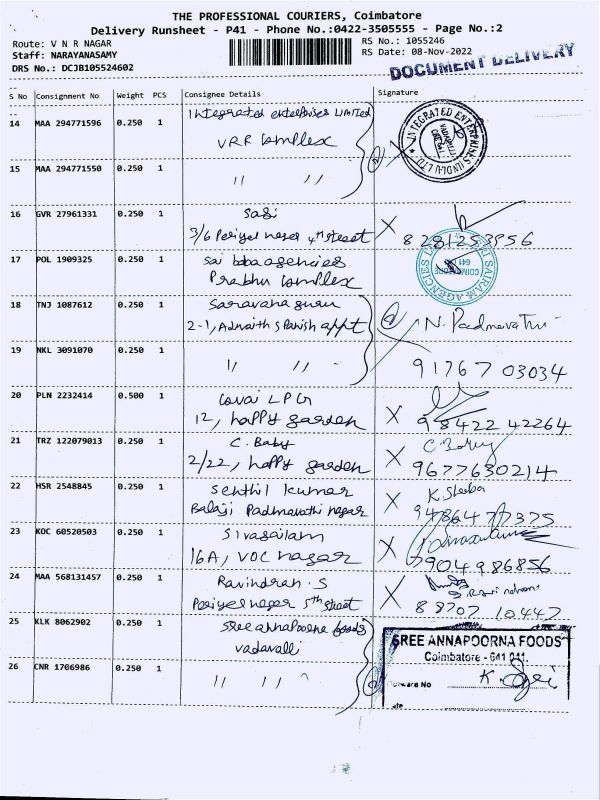 THE PROFESSIONAL COURIERS, Coimbatore
Delivery Runsheet - P41 - Phone No.:0422-3505555 - Page No.:2
Route: V N R NAGAR
RS No.: 1055246
Staff: NARAYANASAMY
RS Date: 08-Nov-2022
DRS No.: DCJB105524602
DOCUMENT DELIVERY
S No Consignment No Weight PCS Consignee Details Signature
14 MAA 294771596 0.250 1 Integrated enterprises Limited
VRR complex
INTEGRATED ENTERPRISES (INDIA) LTD.
15 MAA 294771550 0.250 1 " "
16 GVR 27961331 0.250 1 Sagi
3/6 Periyar nagar 4th street X 8281253956
17 POL 1909325 0.250 1 Sai baba agencies
Prabhu complex
SAIRAM AGENCIES
COIMBATORE
641
18 TNJ 1087612 0.250 1 Saravana guru
2-1, Adwaith s Parish appt N. Padmavathi
19 NKL 3091070 0.250 1 " " 91767 03034
20 PLN 2232414 0.500 1 Covai LPG
12, happy garden X 98422 42264
21 TRZ 122079013 0.250 1 C. Baby
2/22, happy garden X C. Baby
9677630214
22 HSR 2548845 0.250 1 Senthil kumar
Balaji Padmavathi nagar X K. Sheeba
9486477375
23 KOC 60520503 0.250 1 Sivasailam
16A, VOC nagar X
7904986856
24 MAA 568131457 0.250 1 Ravindran. S
Periyer nagar 5th street X
88707 10447
25 KLK 8062902 0.250 1 Sree annapoorna foods
vadavalli
SREE ANNAPOORNA FOODS
Coimbatore - 641 041
26 CNR 1706986 0.250 1 " "
Inward No